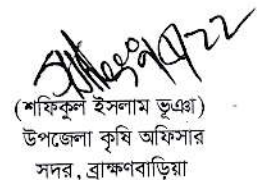 (শফিকুল ইসলাম ভূঞা)
উপজেলা কৃষি অফিসার
সদর, ব্রাক্ষণবাড়িয়া